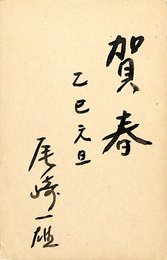 賀春
乙巳元旦
尾崎一雄